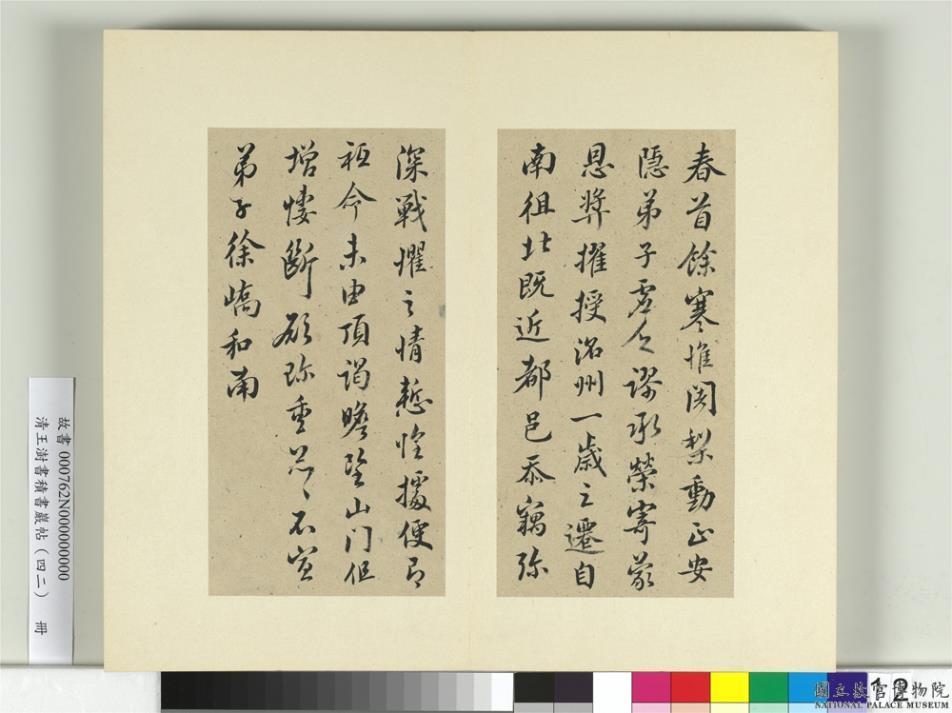 春首餘寒惟闍梨動止安
隱弟子虛乏謬承榮寄蒙
恩獎擢授洺州一歲之遷自
南徂北既近都邑忝竊彌
深戰懼之情慙惶據便即
祗今未由頂謁瞻望山門但
增悽斷願珍重怱〻不宣
弟子徐嶠和南
故書 000762N000000000
清王澍書積書巖帖（四二） 冊
12
國立故宮博物院
NATIONAL PALACE MUSEUM